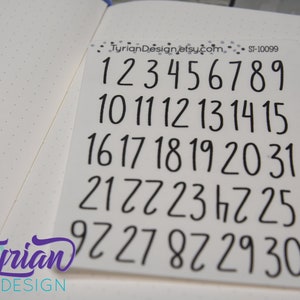 TyrianDesign.etsy.com ST-10099
1 2 3 4 5 6 7 8 9
10 11 12 13 14 15
16 17 18 19 20 31
21 22 23 24 25
26 27 28 29 30
Tyrian
DESIGN